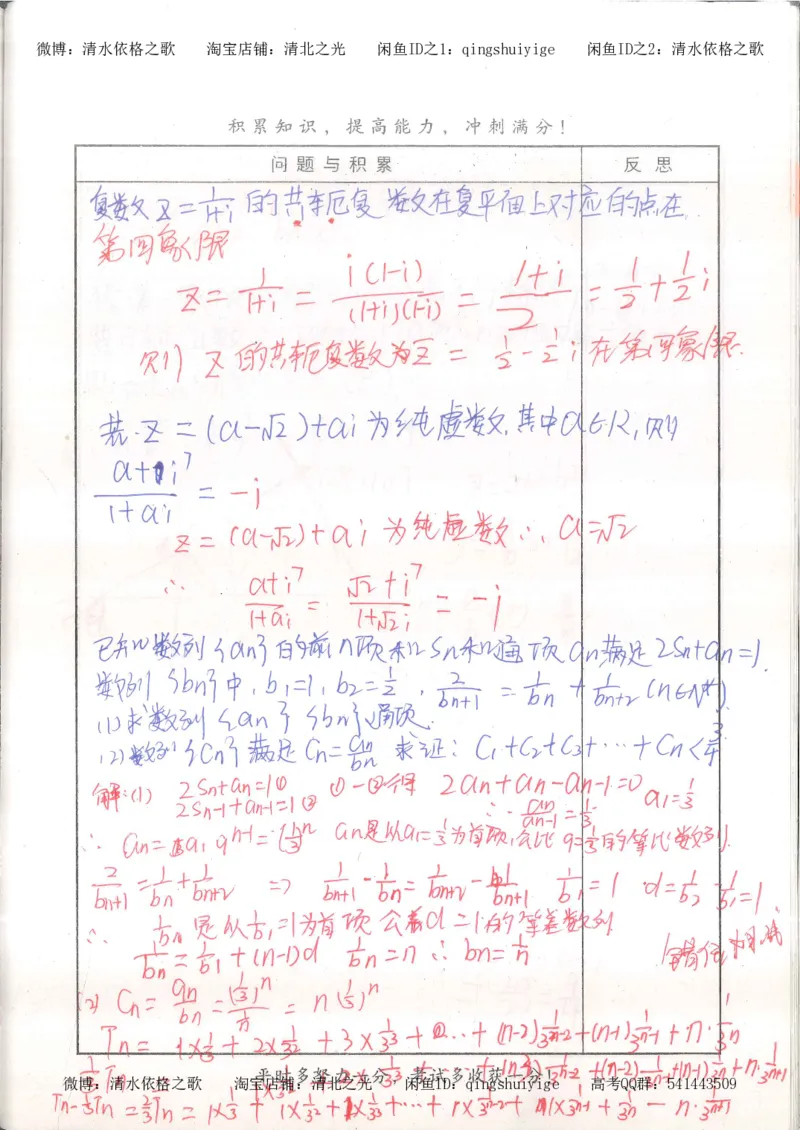 微博：清水依格之歌 淘宝店铺：清北之光 闲鱼ID之1：qingshuiyige 闲鱼ID之2：清水依格之歌
积累知识，提高能力，冲刺满分！
问题与积累 反思
复数 z = 1/(1+i) 的共轭复数在复平面上对应的点在
第四象限
z = 1/(1+i) = i(1-i)/((1+i)(1-i)) = (1+i)/2 = 1/2 + 1/2 i
则 z 的共轭复数为 z̄ = 1/2 - 1/2 i 在第四象限.
若 z = (a-√2)+ai 为纯虚数, 其中 a∈R, 则
(a+i⁷)/(1+ai) = -i
z = (a-√2)+ai 为纯虚数 ∴ a=√2
∴ (a+i⁷)/(1+ai) = (√2+i⁷)/(1+√2i) = -i
已知数列{an}的前n项和Sn和通项an满足2Sn+an=1.
数列{bn}中, b₁=1, b₂=1/2, 2/bn+1 = 1/bn + 1/bn+2 (n∈N*).
(1)求数列{an}{bn}通项.
(2)数列{Cn}满足Cn=an/bn 求证: C₁+C₂+C₃+…+Cn<3/4
解:(1) 2Sn+an=1① ①-②得 2an+an-an-1=0 a₁=1/3
2Sn-1+an-1=1② ∴ an/an-1=1/3
∴ an=a₁qⁿ⁻¹=(1/3)ⁿ an是以a₁=1/3为首项,公比q=1/3的等比数列.
2/bn+1=1/bn+1/bn+2 ⇒ 1/bn+1-1/bn=1/bn+2-1/bn+1 1/b₁=1 d=1/b₂-1/b₁=1.
∴ 1/bn是以1/b₁=1为首项 公差d=1的等差数列
1/bn=1/b₁+(n-1)d 1/bn=n ∴ bn=1/n
错位相减
(2) Cn=an/bn=(1/3)ⁿ/(1/n)=n(1/3)ⁿ
Tn=1×1/3+2×1/3²+3×1/3³+…+(n-2)1/3ⁿ⁻²+(n-1)1/3ⁿ⁻¹+n·1/3ⁿ
平时多努力一分，考试多收获一分！
微博：清水依格之歌 淘宝店铺：清北之光 闲鱼ID：qingshuiyige 高考QQ群：541443509
Tn-1/3Tn=2/3Tn=1×1/3+1×1/3²+1×1/3³+…+1×1/3ⁿ⁻²+1×1/3ⁿ⁻¹+1/3ⁿ-n·1/3ⁿ⁺¹